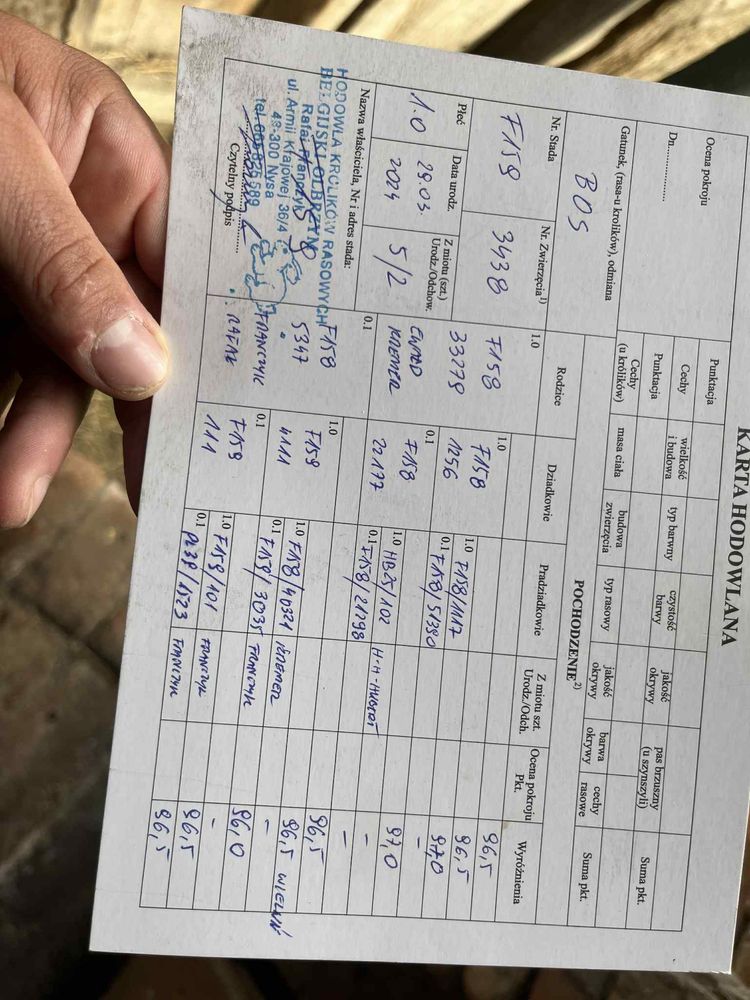 KARTA HODOWLANA
Ocena pokroju
Dn..................
Punktacja
Cechy
wielkość i budowa
typ barwny
czystość barwy
jakość okrywy
pas brzuszny (u szynszyli)
Suma pkt.
Punktacja
Gatunek, (rasa-u krolików), odmiana
BOS
Cechy (u królików)
masa ciała
budowa zwierzęcia
typ rasowy
jakość okrywy
barwa okrywy
cechy rasowe
Suma pkt.
POCHODZENIE²⁾
Nr. Stada
Nr. Zwierzęcia¹⁾
Rodzice
Dziadkowie
Pradziadkowie
Z miotu szt. Urodz./Odch.
Ocena pokroju Pkt.
Wyróżnienia
F158
3438
Płeć
Data urodz.
Z miotu (szt.) Urodz./Odchow.
1.0
29.03 2024
5/2
Nazwa właściciela, Nr i adres stada:
HODOWLA KRÓLIKÓW RASOWYCH
BELGIJSKI OLBRZYM
Rafał Franczyk
ul. Armii Krajowej 36/4
48-300 Nysa
Czytelny podpis
1.0
F158
33278
KREMER
96,5
1.0
F158
1256
96,5
1.0 F158/1117
0.1 F158/51390
97,0
-
0.1
F158
22177
97,0
1.0 HB25/102 H-H-HUBERT
-
0.1 F158/21298
-
0.1
F158
5347
FRANCZYK
RAFAŁ
96,5
1.0
F158
4111
96,5 WIELUŃ
1.0 F158/40321 KREMER
-
0.1 F158/3035 FRANCZYK
96,0
0.1
F158
111
-
1.0 F158/101 FRANCZYK
96,5
0.1 FRANCZYK
96,5